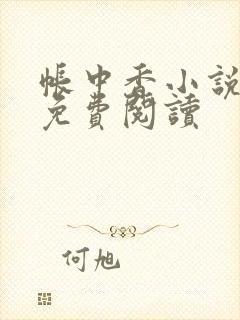 帳中香小說
免費閱讀
何旭